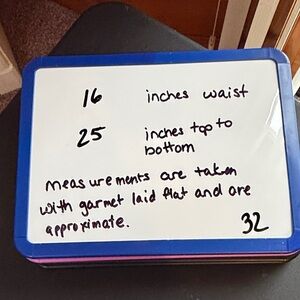 16 inches waist
25 inches top to
bottom
measurements are taken
with garmet laid flat and are
approximate.
32